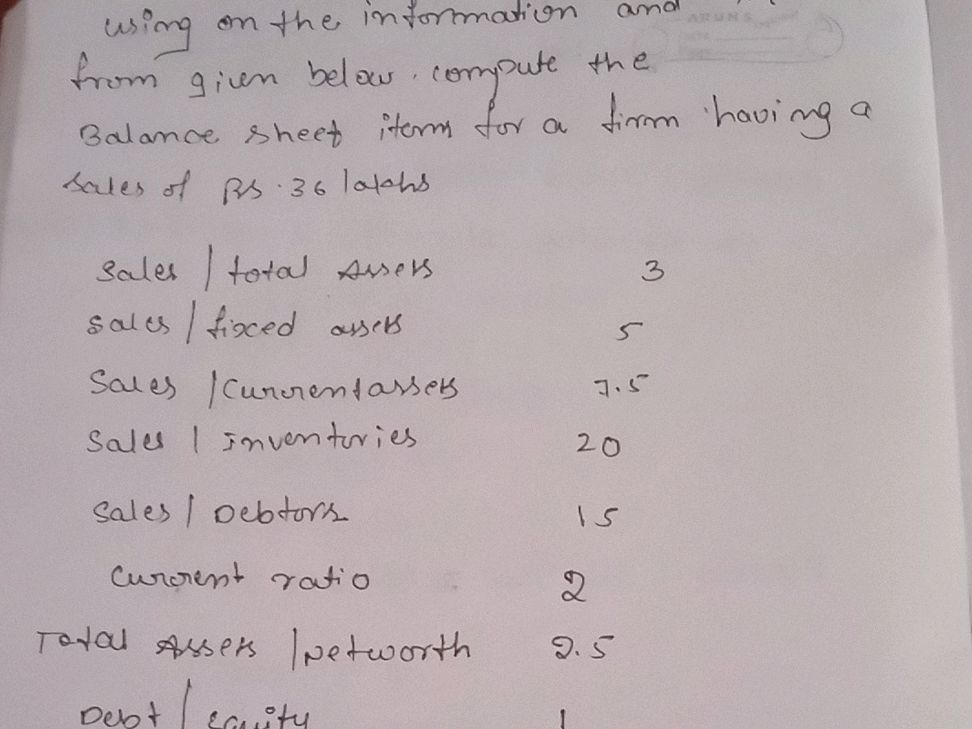 using on the information and
ARUNS
from given below. compute the
Balance sheet items for a firm having a
sales of Rs. 36 lakhs
Sales / total Assets 3
sales / fixed assets 5
Sales / Current assets 7.5
Sales / Inventories 20
Sales / Debtors 15
Current ratio 2
Total Assets / Networth 2.5
Debt / equity 1